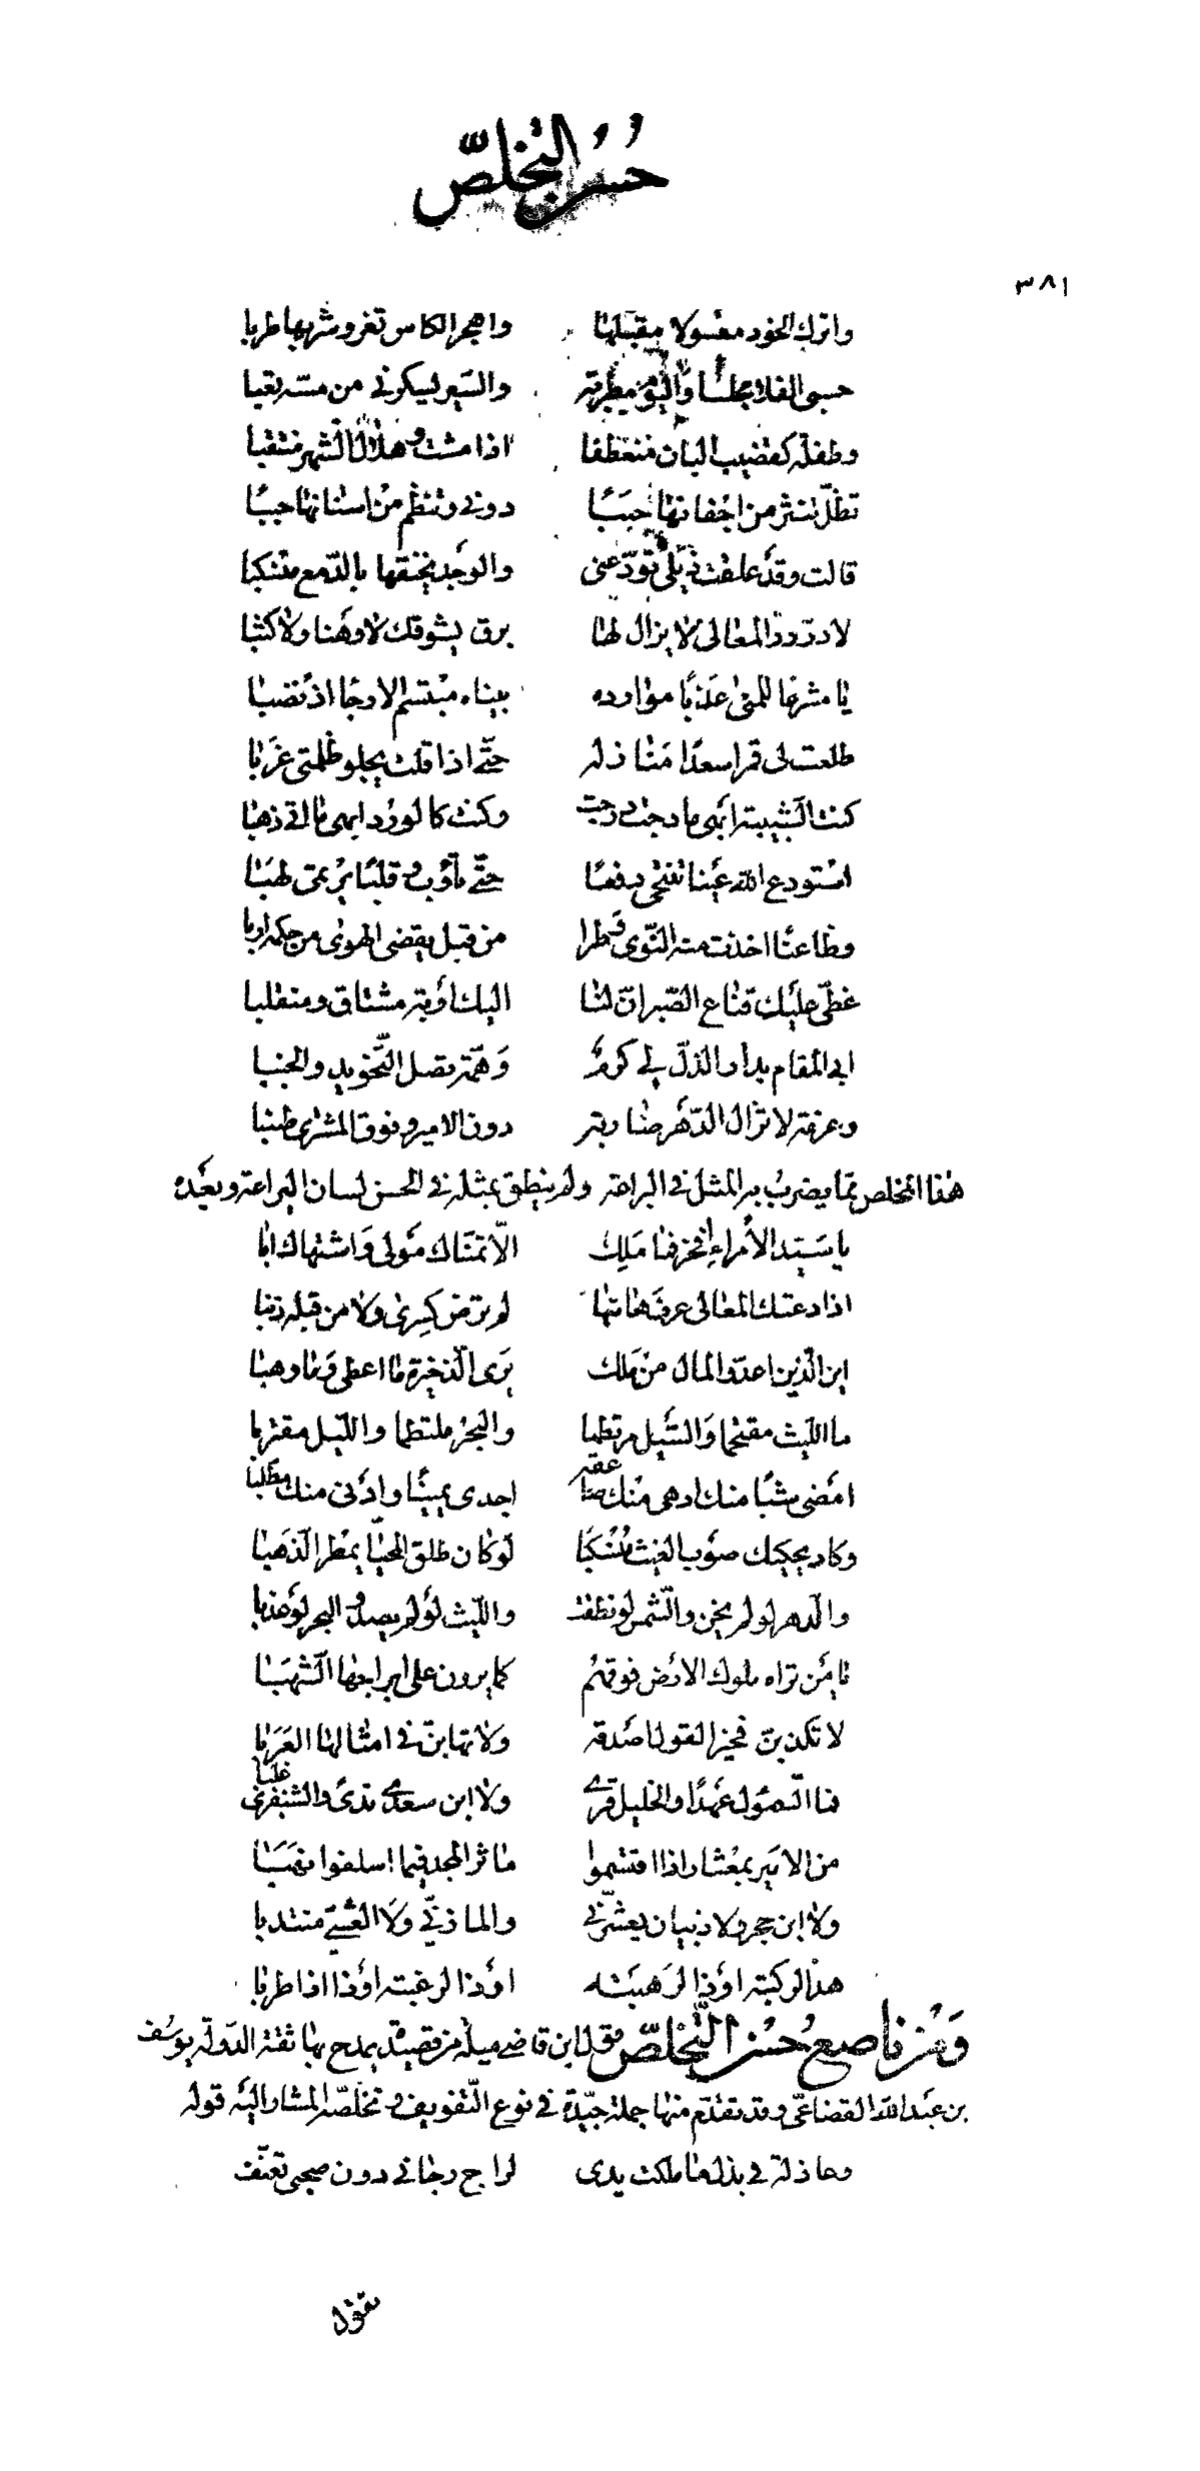 حُسْنُ التَّخَلُّصِ
٣٨١
واترك الخود معسولا مقبّلها واهجر الكاس تغرو شربها طربا
حسبى الفلا مجلسا والبوم مطربة والسير يسكرنى من مسّه تعبا
وطفلة كقضيب البان منعطفا اذا مشت وهلال الشهر منتقبا
تظلّ تنثر من اجفانها حببًا دونى وتنظم من اسنانها حببًا
قالت وقد علقت ذيلى تودّعنى والوجد يخنقها بالدّمع منسكبا
لا درّ درّ المعالى لا يزال لها برق يشوقك لا وهنا ولا كثبا
يا مشرعا للمنى عذبًا موارده بيناه مبتسم الارجا اذ نضبا
طلعت لى قمرا سعدًا منازله حتّى اذا قلت يجلو ظلمتى غربا
كنت الشبيبة ابهى ما دجت درجت وكنت كالورد ابهى ما اتى ذهبا
استودع الله عينا تنتحى دفعًا حتّى تؤوب وقلبًا يرتمى لهبا
وظاعنًا اخذت منه النّوى وطرا من قبل يقضى الهوى من حكمه اربا
غطّى عليك قناع الصّبر انّ لنا اليك اوبة مشتاق ومنقلبا
ابى المقام بدار الذلّ لى كرمٌ وَهمّة تصل التّخويد والخببا
وعزمة لا تزال الدّهر ضاربة دون الامير وفوق المشترى طنبا
هذا المخلص ممّا يضرب به المثل فى البراعة ولم ينطق بمثله فى الحسن لسان اليراعة وبعده
يا سَيّد الأمراء افخر فما مَلِك الّا تمنّاك مَولى وَاشتهاك ابا
اذا دعتك المعالى عرف هامتها لم ترض كسرى ولا من قبله ذنبا
اين الّذين اعدّوا المال من ملك يرى الذّخيرة ما اعطى وَما وهبا
ما الليث مقتحما وَالسَّيل مرتطما والبحر ملتطما والليل مقتربا
امضى شبًا منك ادهى منك صاعقة اجدى يمينًا وادنى منك مطّلبا
وكاد يحكيك صوب الغيث منسكبًا لو كان طلق المحيّا يمطر الذّهبا
والدهر لو لم يخن والشّمس لو نطقت والليث لو لم يصد والبحر لو عذبا
يا مَن تراه ملوك الارض فوقهم كما يرون على ابراجها الشّهبا
لا تكذبنّ فخير القول اصدقه ولا تهابنّ فى امثالها العربا
فما السّموأل عهدًا والخليل قرى ولا ابن سعدى ندىً والشنفرى غلبا
من الامير بمعشار اذا اقتسموا مآثر المجد فيما اسلفوا نهبا
ولا ابن حجر ولا ذبيان يعشرنى والمازنىّ ولا العبسىّ منتدبا
هذا لركبته اوذا لرهبته اوذا لرغبته اوذا اذا طربا
وَمنْ ناصع حُسْن التَّخلّص قول ابن قاضى ميلة من قصيدة يمدح بها ثقة الدّولة يوسُف
بن عبد الله القضاعىّ وقد تقدّم منها جملة جيّدة فى نوع التّفويف وتخلّصه المشار اليه قوله
وعاذلة فى بذل ما ملكت يدى لراج رجانى دون صحبى تعنّف
تقول